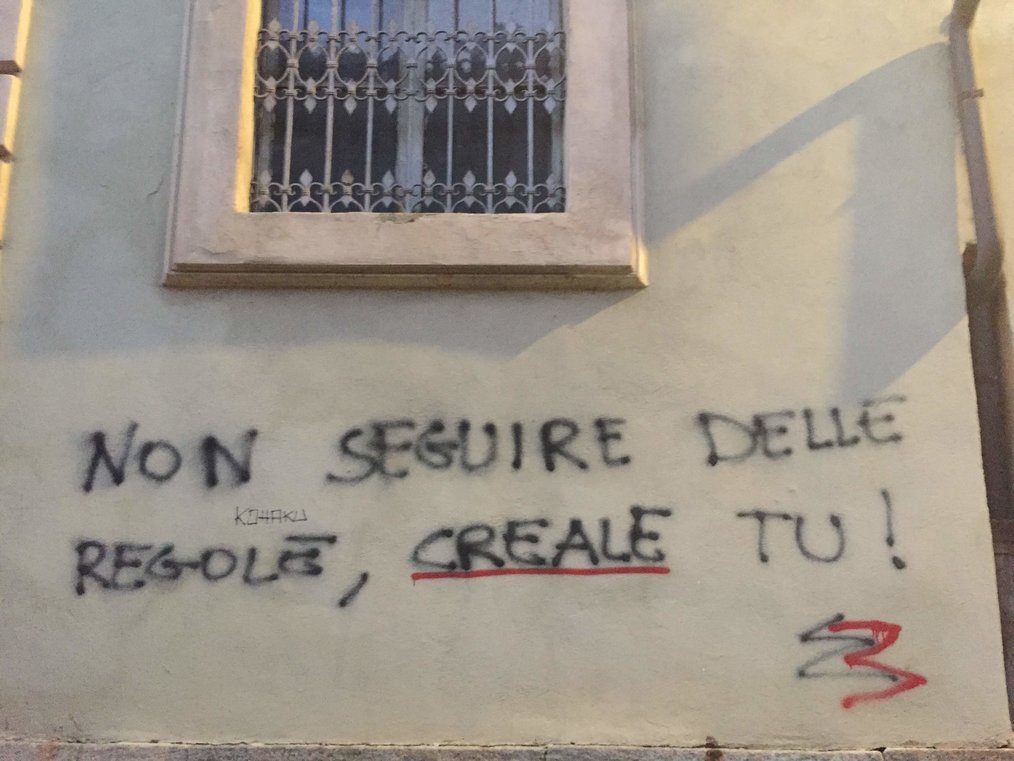 NON SEGUIRE DELLE
KOHAKU
REGOLE, CREALE TU!